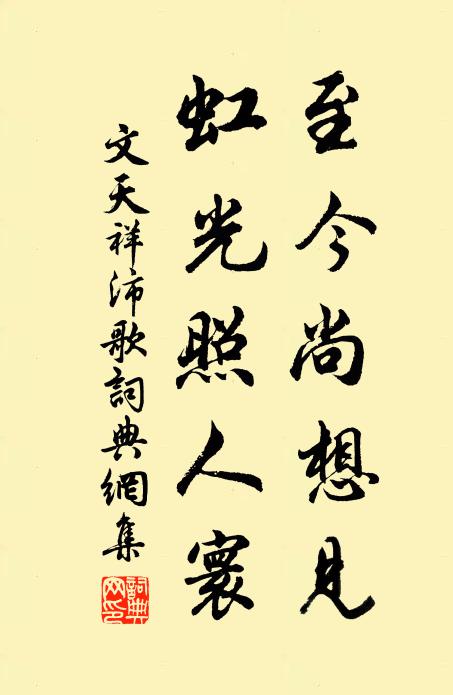 至今尚想見
虹光照人寰
文天祥沛歌詞典網集
詞典网印